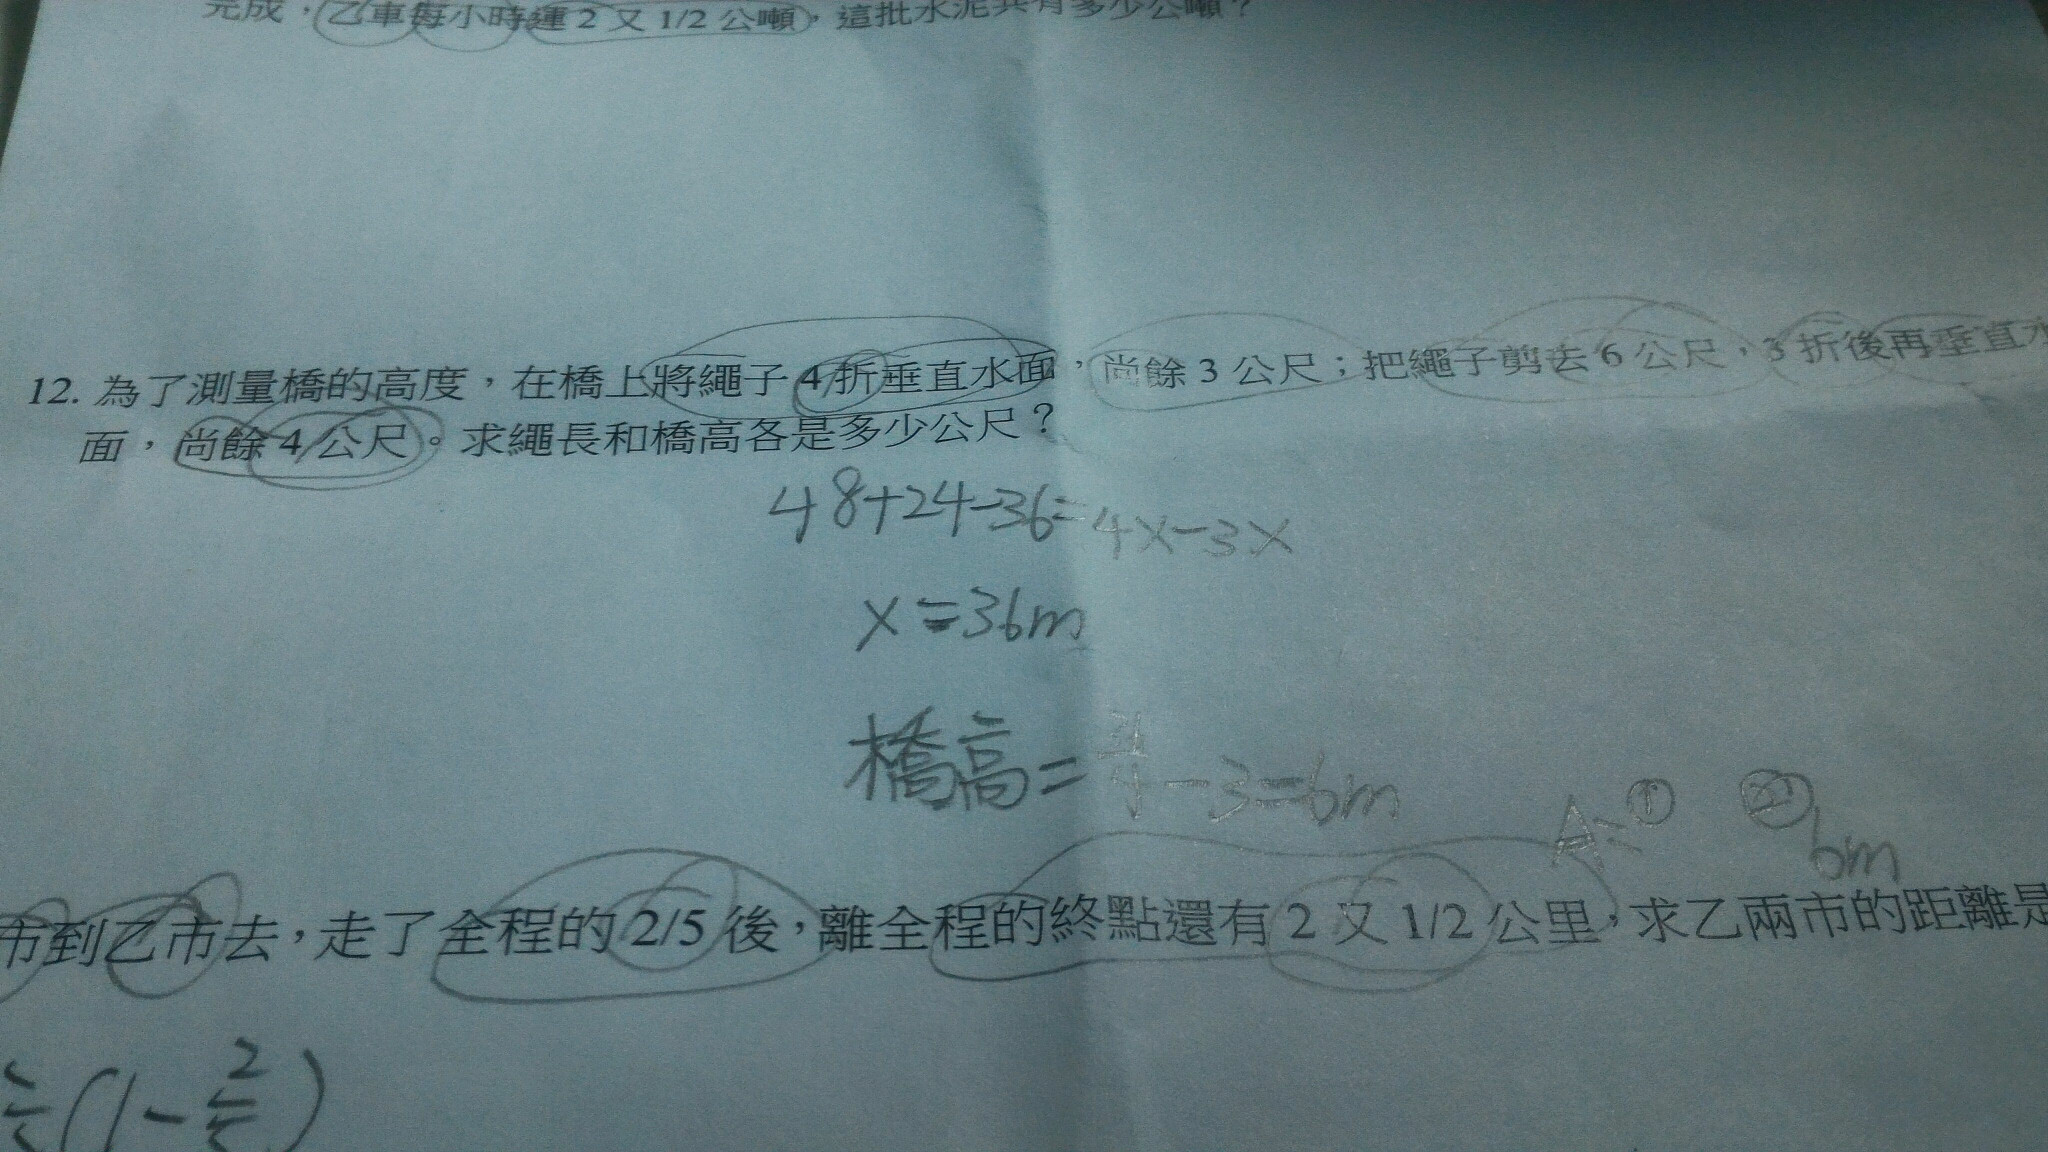 完成，乙車每小時運 2 又 1/2 公噸，這批水泥共有多少公噸？
12. 為了測量橋的高度，在橋上將繩子 4 折垂直水面，尚餘 3 公尺；把繩子剪去 6 公尺，3 折後再垂直水
面，尚餘 4 公尺。求繩長和橋高各是多少公尺？
48+24-36=4x-3x
x=36m
橋高= -3=6m
A=① 6m
市到乙市去，走了全程的 2/5 後，離全程的終點還有 2 又 1/2 公里，求乙兩市的距離是
(1-2/5)